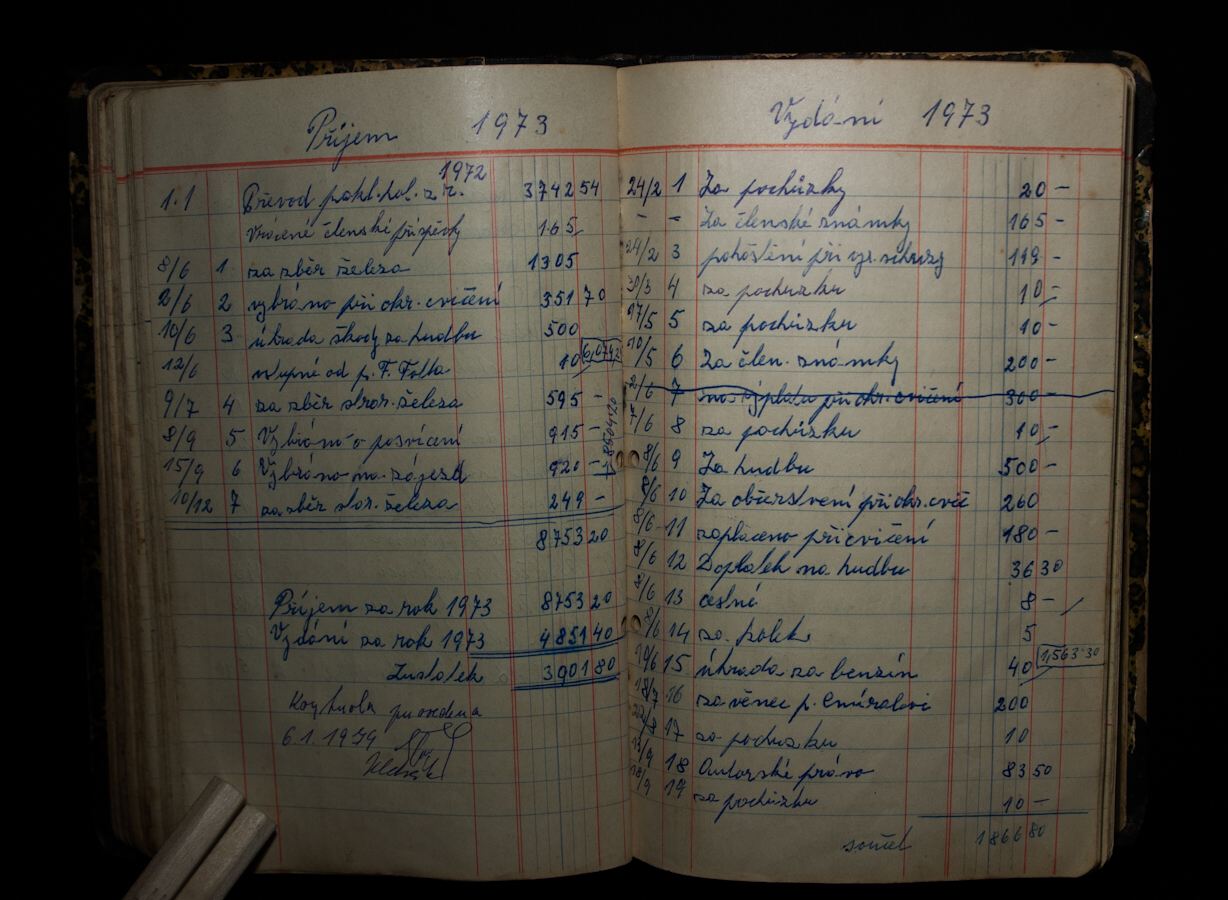 Příjem 1973
1972
1.1 Převod pokl. hot. z r. 3742 54
Vrácené členské příspěvky 165,
8/6 1 za zběr železa 1305
2/6 2 vybráno při okr. cvičení 351 70
10/6 3 úhrada škody za hudbu 500
12/6 vstupné od p. F. Folta 10
9/7 4 za zběr star. železa 595 -
8/9 5 Vybráno o posvícení 915 -
15/9 6 Vybráno na zájezd 920 -
10/12 7 za zběr star. železa 249 -
8753 20
Příjem za rok 1973 8753 20
Vydání za rok 1973 4851 40
Zůstatek 3901 80
provedena
Vydání 1973
24/2 1 Za pochůzky 20 -
- - Za členské známky 165 -
24/2 3 pohoštění při výr. schůzy 119 -
4 za pochůzku 10,-
17/5 5 za pochůzku 10 -
10/5 6 Za člen. známky 200 -
2/6 7 při okr. cvičení 300 -
7/6 8 za pochůzku 10,-
8/6 9 Za hudbu 500 -
8/6 10 Za občerstvení při okr. cvič 260
8/6 11 zaplaceno při cvičení 180 -
8/6 12 Doplatek na hudbu 36 30
8/6 13 cestné 8 -
8/6 14 za kolek 5
1,563 30
10/6 15 úhrada za benzín 40
18/7 16 za věnec p. 200
17 za pochuzku 10
13/9 18 Autorské právo 83 50
18/9 19 za pochůzku 10 -
součet 1866 80